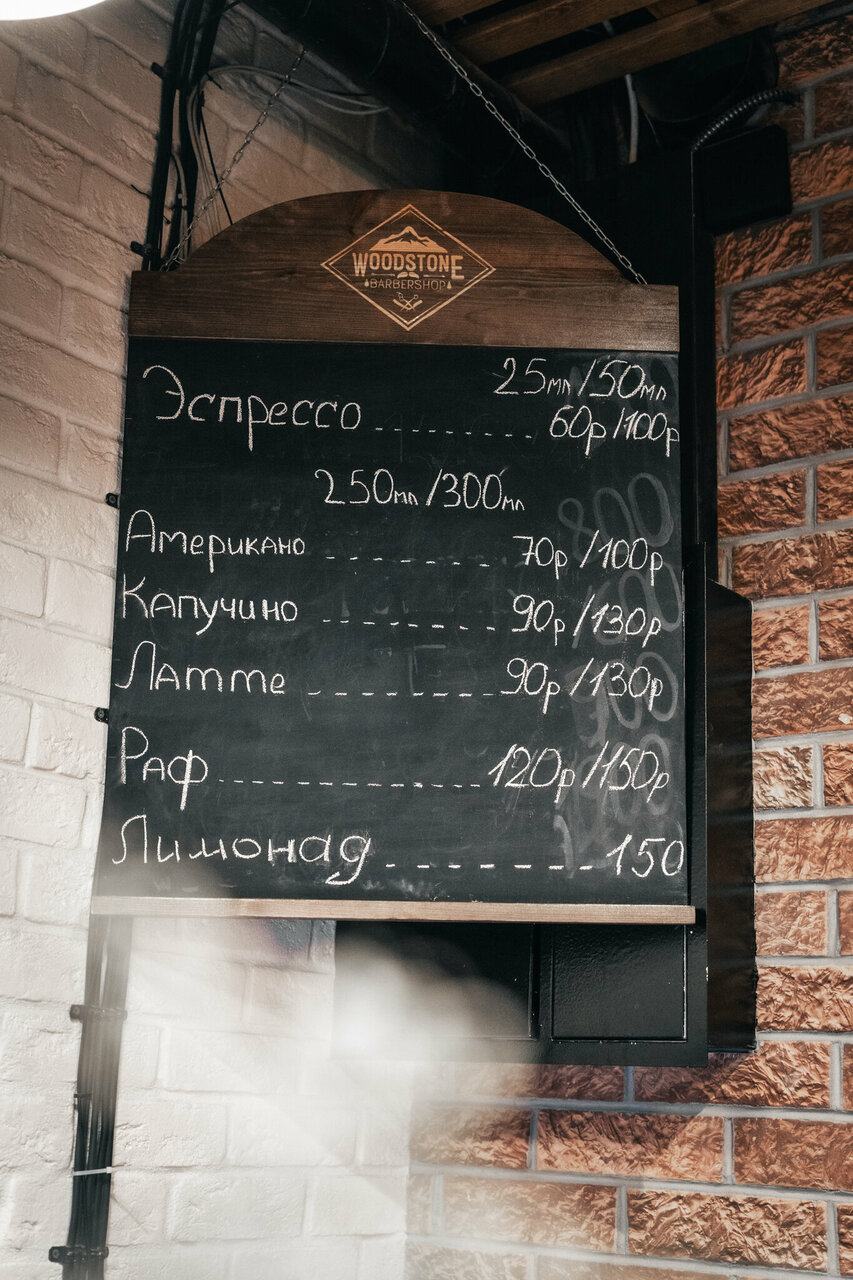 WOODSTONE
BARBERSHOP
25мл/50мл
Эспрессо ............ 60р/100р
250мл/300мл
Американо ---------- 70р/100р
Капучино ---------- 90р/130р
Латте ---------- 90р/130р
Раф -------------------- 120р/150р
Лимонад ---------- 150